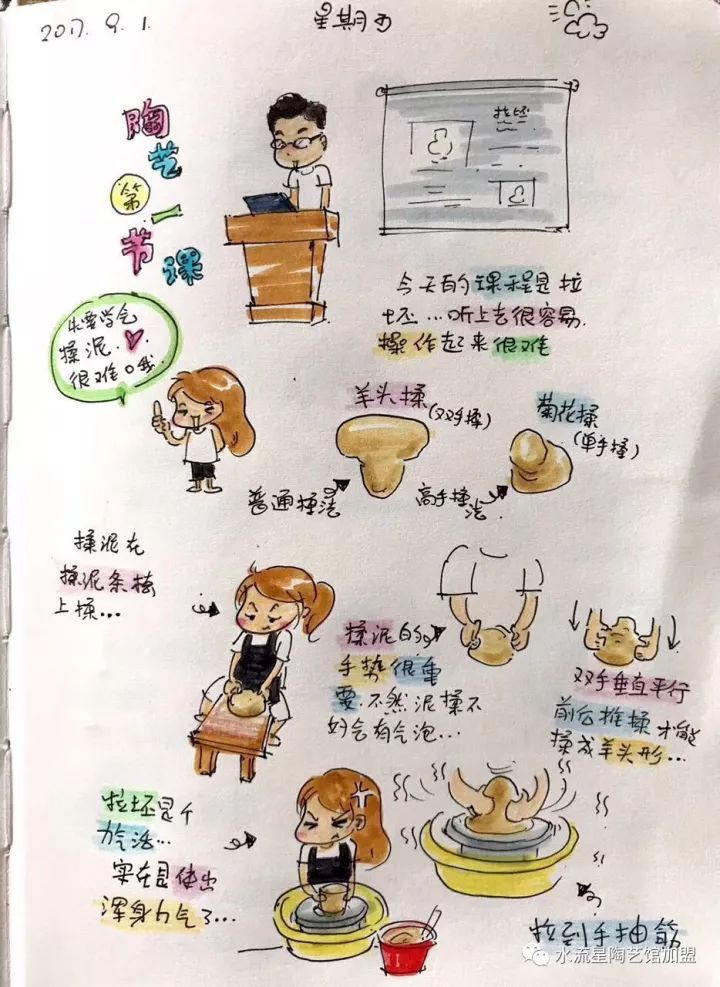 2017. 9. 1.
星期五
陶艺
第一
节课
拉坯
今天的课程是拉
坯...听上去很容易.
操作起来很难
先要学会
揉泥.
很难の哦
羊头揉
(双手揉)
菊花揉
(单手揉)
普通揉法
高手揉法
揉泥在
揉泥条椅
上揉...
揉泥的
手势很重
要.不然泥揉不
好会有气泡...
双手垂直平行
前后推揉才能
揉成羊头形...
拉坯是个
力气活...
实在是使出
浑身力气了...
拉到手抽筋
水流星陶艺馆加盟